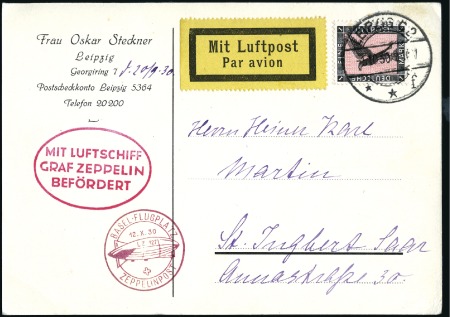 Frau Oskar Steckner
Leipzig
Georgiring 7
Postscheckkonto Leipzig 5364
Telefon 20200
Mit Luftpost
Par avion
DEUTSCHE
MARK
LEIPZIG C2
MIT LUFTSCHIFF
GRAF ZEPPELIN
BEFÖRDERT
BASEL-FLUGPLATZ
12.X.30
ZEPPELINPOST
Herrn Heiner Karl
Martin
St. Ingbert Saar
Annastraße 30